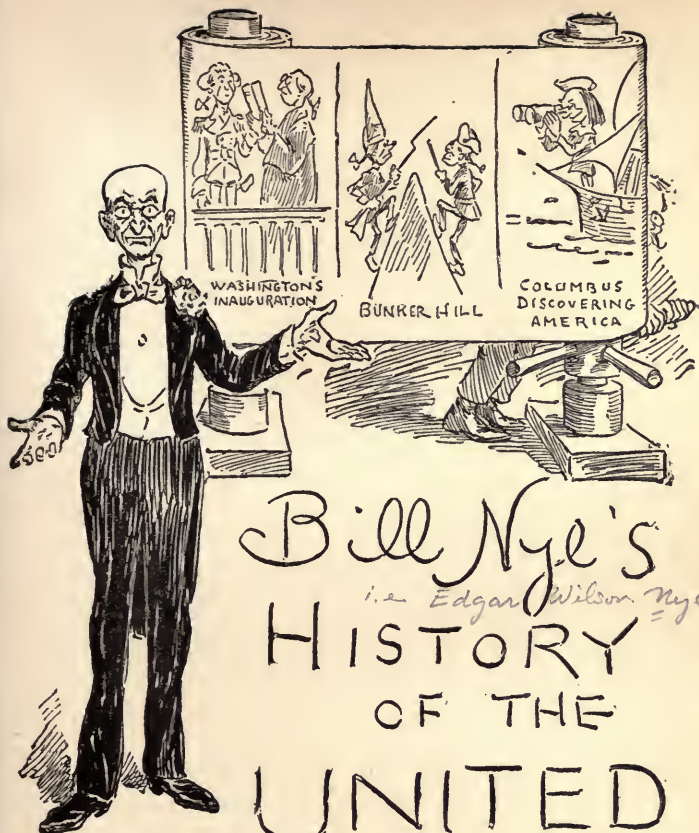 WASHINGTON'S
INAUGURATION
BUNKER HILL
COLUMBUS
DISCOVERING
AMERICA
Bill Nye's
i.e Edgar Wilson Nye
HISTORY
OF THE
UNITED